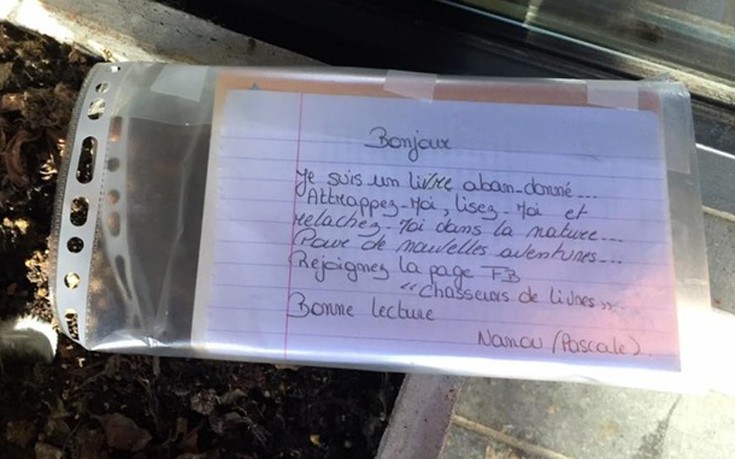 Bonjour
Je suis un livre aban-donné...
Attrappez-Moi, lisez-Moi et
relachez-Moi dans la nature...
Pour de nouvelles aventures...
Rejoignez la page FB
"Chasseurs de livres".
Bonne lecture
Nanou (Pascale).